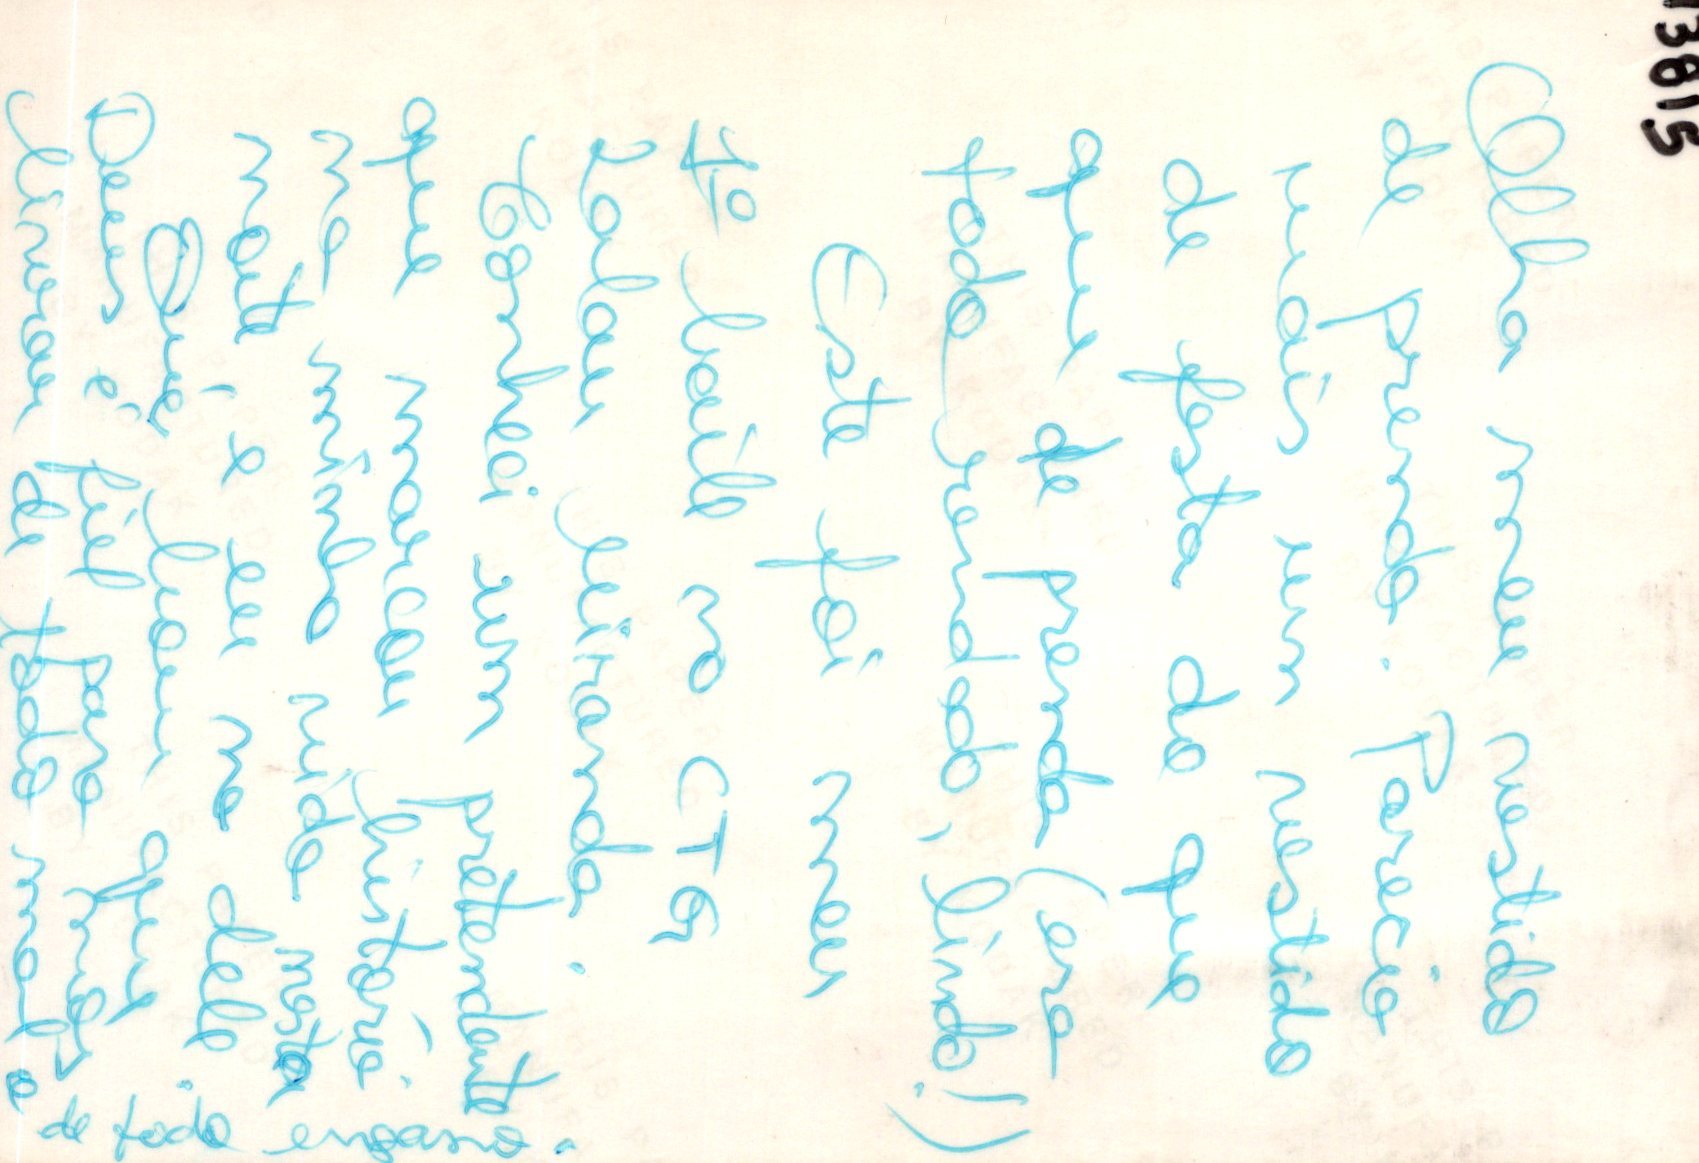 13815
Olha meu vestido
de prenda. Parecia
mais um vestido
de festa do que
que de prenda (era
todo rendado, lindo!)
Este foi meu
1º baile no CTG
Lalau Miranda.
Conheci um pretendente
que marcou história
na minha vida nesta
noite e eu na dele
Que bom que
Deus é fiel para
livrar de todo mal
e de todo engano.